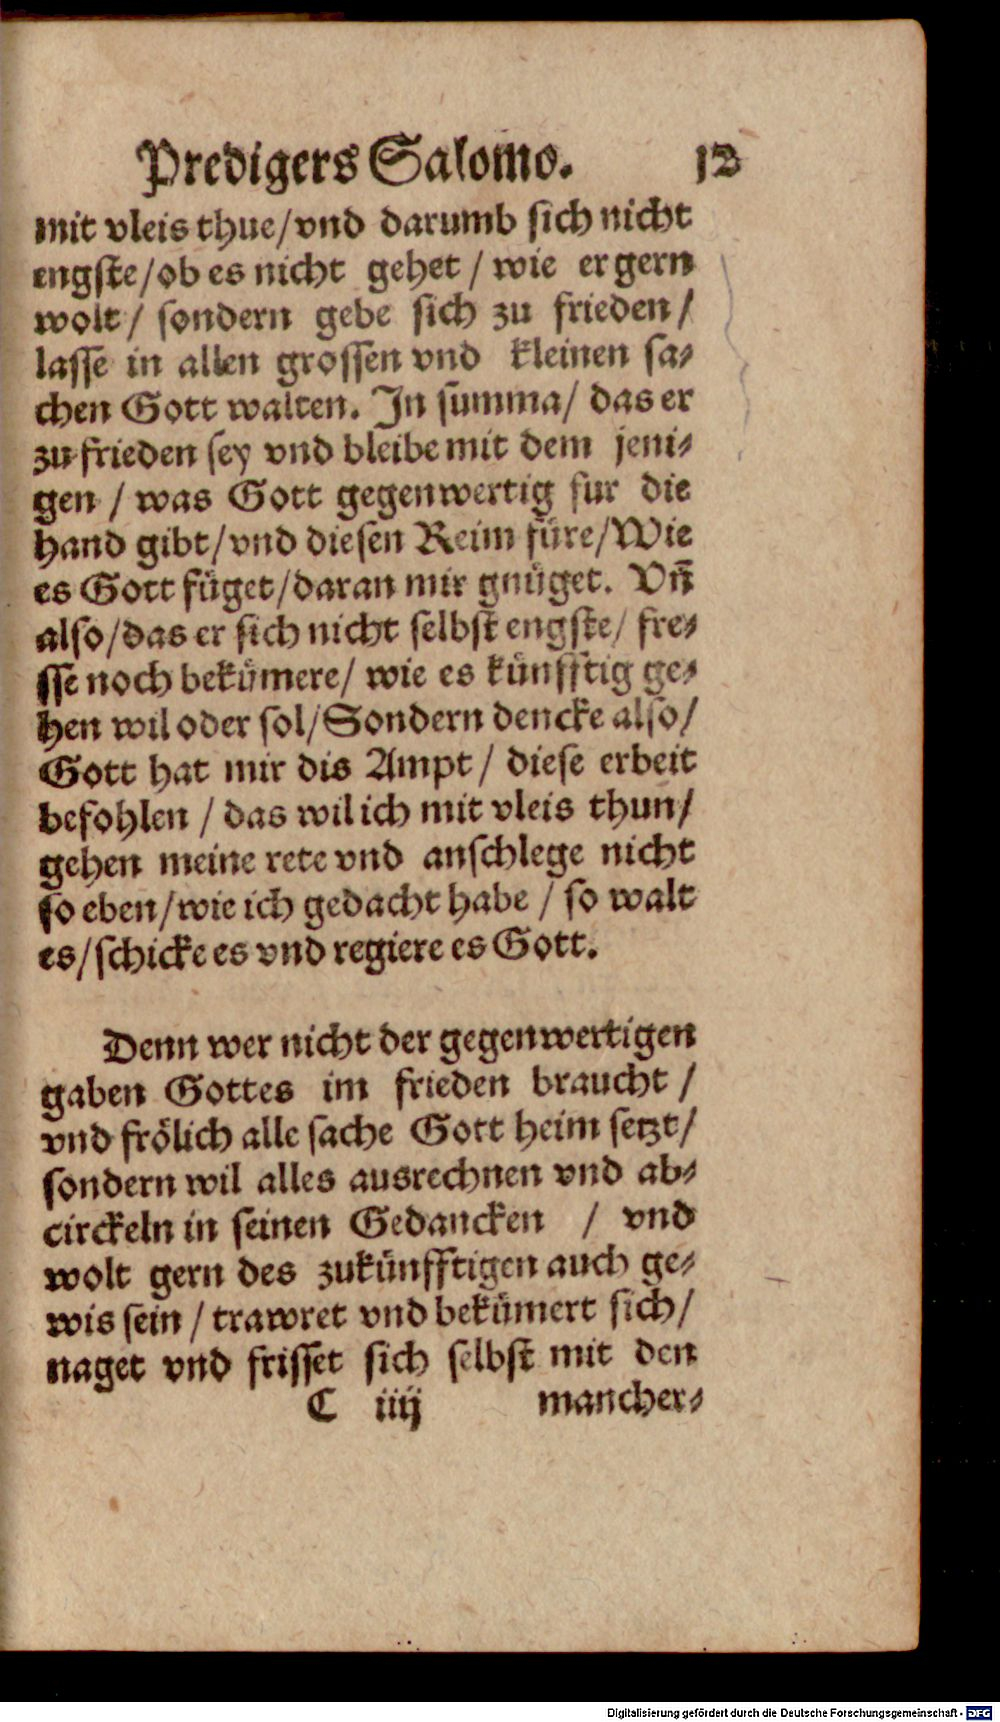 Predigers Salomo. 12
mit vleis thue/vnd darumb sich nicht
engste/ob es nicht gehet / wie er gern
wolt / sondern gebe sich zu frieden /
lasse in allen grossen vnd kleinen sa⸗
chen Gott walten. In summa/ das er
zu frieden sey vnd bleibe mit dem jeni⸗
gen / was Gott gegenwertig fur die
hand gibt/vnd diesen Reim füre/Wie
es Gott füget/daran mir gnüget. Vn̄
also/das er sich nicht selbst engste/ fre⸗
sse noch bekümere/ wie es künfftig ge⸗
hen wil oder sol/Sondern dencke also/
Gott hat mir dis Ampt / diese erbeit
befohlen / das wil ich mit vleis thun/
gehen meine rete vnd anschlege nicht
so eben/wie ich gedacht habe / so walt
es/schicke es vnd regiere es Gott.
Denn wer nicht der gegenwertigen
gaben Gottes im frieden braucht /
vnd frölich alle sache Gott heim setzt/
sondern wil alles ausrechnen vnd ab⸗
circkeln in seinen Gedancken / vnd
wolt gern des zukünfftigen auch ge⸗
wis sein / trawret vnd bekümert sich/
naget vnd frisset sich selbst mit den
C iiij mancher⸗
Digitalisierung gefördert durch die Deutsche Forschungsgemeinschaft - DFG